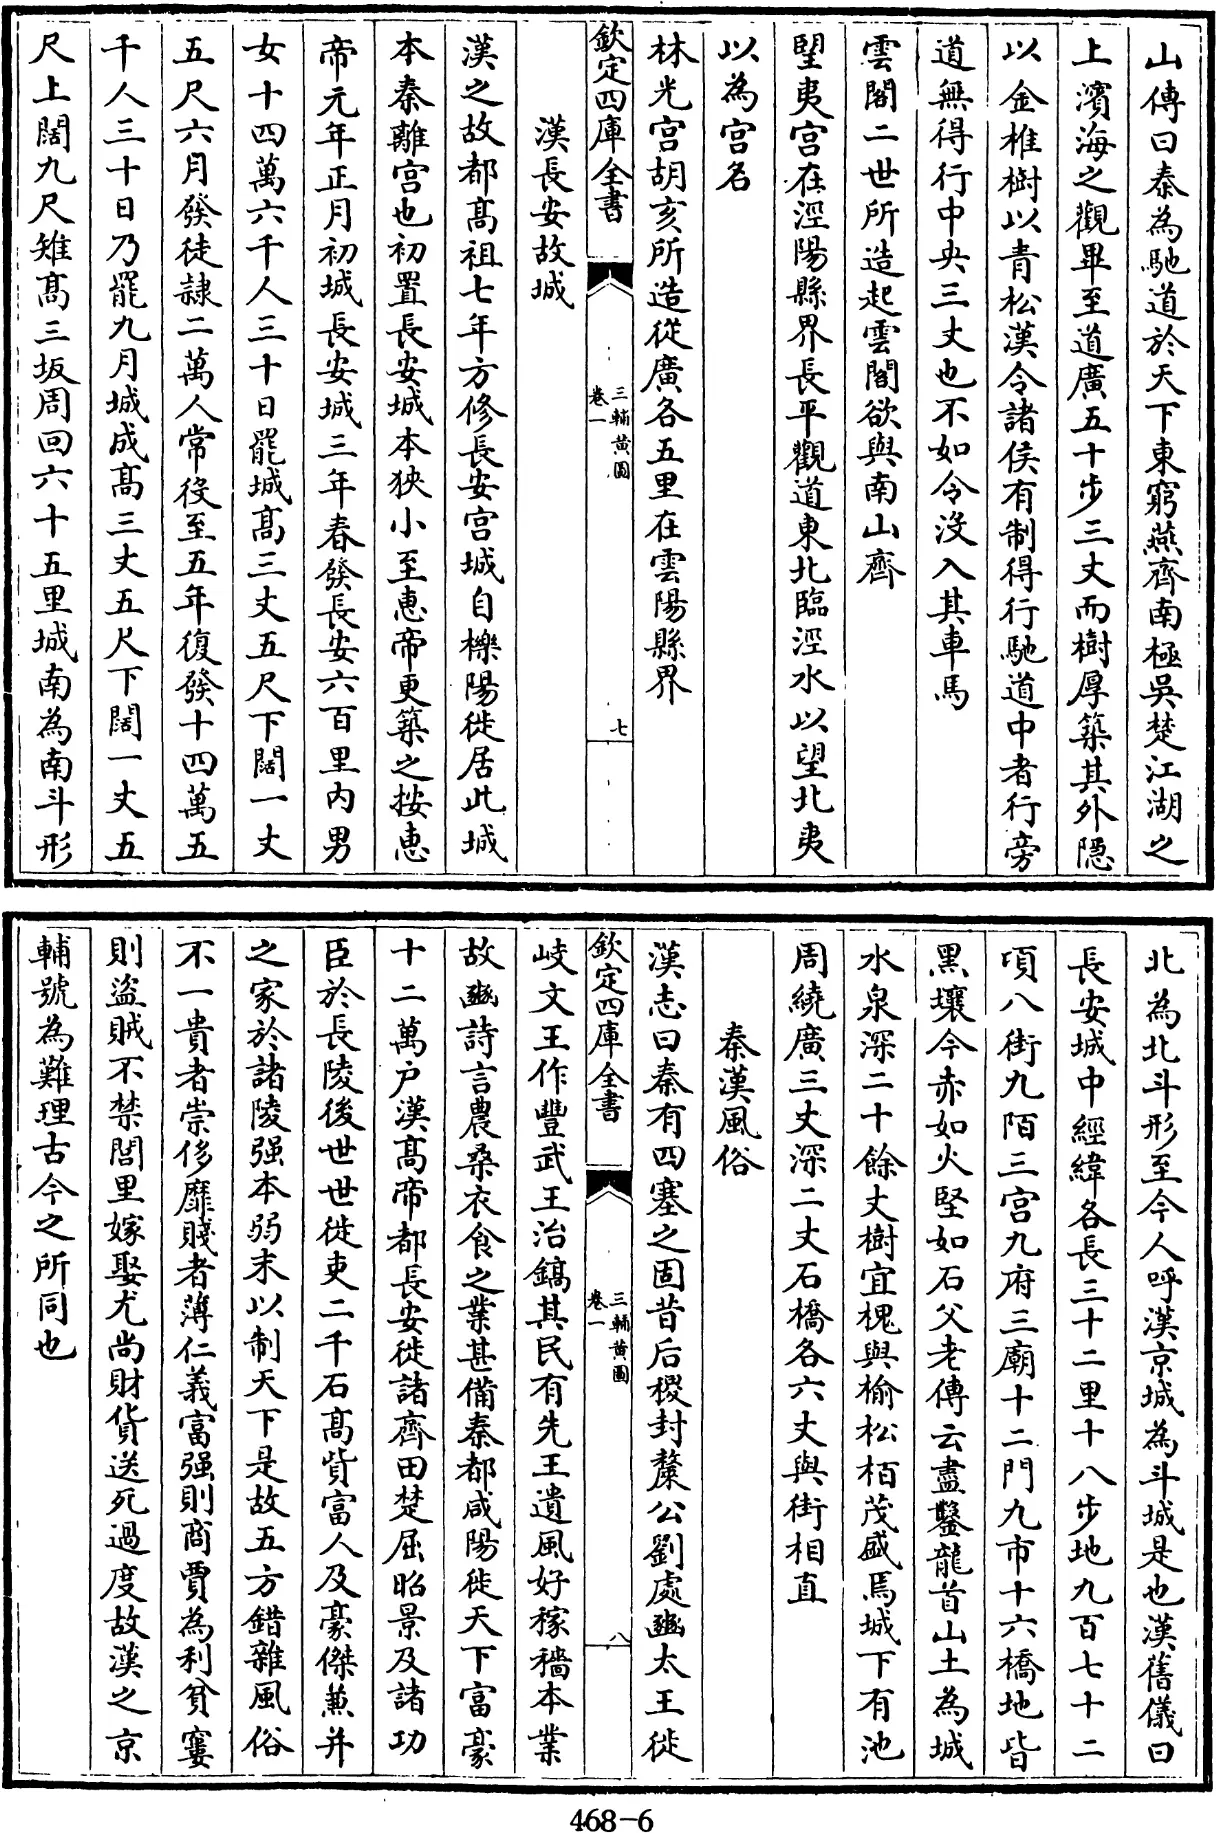 山傳曰秦為馳道於天下東窮燕齊南極吳楚江湖之
上濱海之觀畢至道廣五十步三丈而樹厚築其外隱
以金椎樹以青松漢令諸侯有制得行馳道中者行旁
道無得行中央三丈也不如令沒入其車馬
雲閣二世所造起雲閣欲與南山齊
朢夷宮在涇陽縣界長平觀道東北臨涇水以望北夷
以為宮名
林光宮胡亥所造從廣各五里在雲陽縣界
欽定四庫全書
三輔黃圖
卷一
七
漢長安故城
漢之故都髙祖七年方修長安宮城自櫟陽徙居此城
本秦離宮也初置長安城本狹小至惠帝更築之按惠
帝元年正月初城長安城三年春發長安六百里內男
女十四萬六千人三十日罷城髙三丈五尺下闊一丈
五尺六月發徒隸二萬人常役至五年復發十四萬五
千人三十日乃罷九月城成髙三丈五尺下闊一丈五
尺上闊九尺雉髙三坂周回六十五里城南為南斗形
北為北斗形至今人呼漢京城為斗城是也漢舊儀曰
長安城中經緯各長三十二里十八步地九百七十二
頃八街九陌三宮九府三廟十二門九市十六橋地皆
黑壤今赤如火堅如石父老傳云盡鑿龍首山土為城
水泉深二十餘丈樹宜槐與榆松栢茂盛焉城下有池
周繞廣三丈深二丈石橋各六丈與街相直
秦漢風俗
漢志曰秦有四塞之固昔后稷封斄公劉處豳太王徙
欽定四庫全書
三輔黃圖
卷一
八
岐文王作豐武王治鎬其民有先王遺風好稼穡本業
故豳詩言農桑衣食之業甚備秦都咸陽徙天下富豪
十二萬户漢髙帝都長安徙諸齊田楚屈昭景及諸功
臣於長陵後世世徙吏二千石髙貲富人及豪傑兼并
之家於諸陵强本弱末以制天下是故五方錯雜風俗
不一貴者崇侈靡賤者薄仁義富强則商賈為利貧窶
則盜賊不禁閭里嫁娶尤尚財貨送死過度故漢之京
輔號為難理古今之所同也
468-6